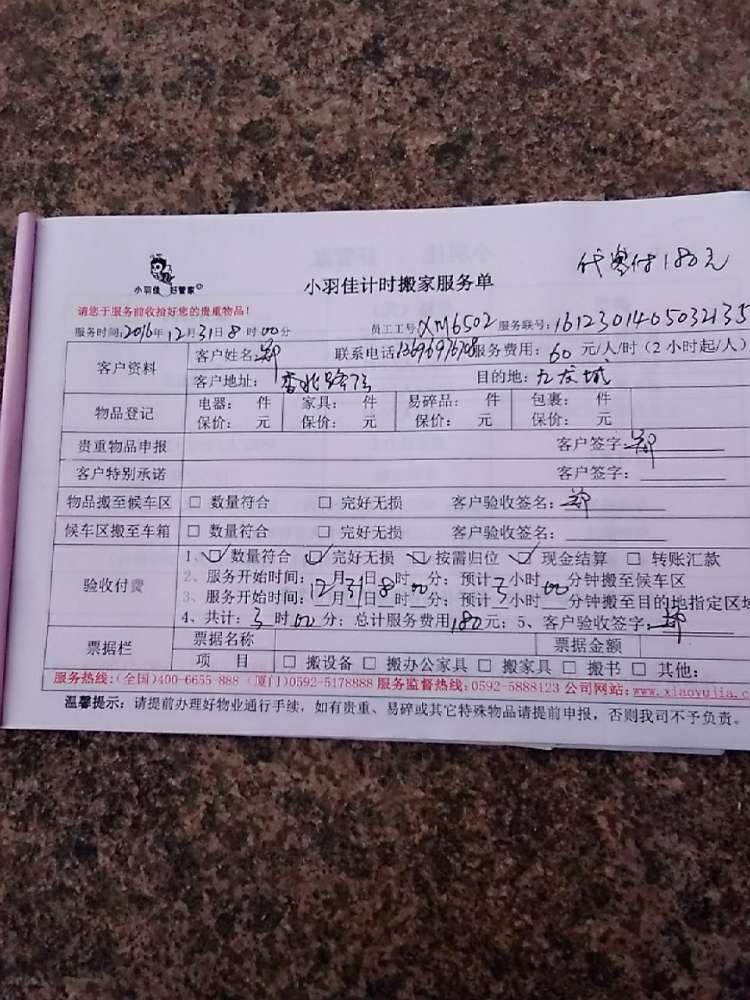 代客付180元
小羽佳 好管家
小羽佳计时搬家服务单
请您于服务前收拾好您的贵重物品!
服务时间:2016年12月31日8时00分 员工工号XM6502 服务联号:1612301405032135
客户资料 客户姓名 郑 联系电话 服务费用:60元/人/时(2小时起/人)
客户地址: 目的地:九龙城
物品登记 电器: 件 家具: 件 易碎品: 件 包裹: 件
保价: 元 保价: 元 保价: 元 保价: 元
贵重物品申报 客户签字:郑
客户特别承诺 客户签字:
物品搬至候车区 □ 数量符合 □ 完好无损 客户验收签名:郑
候车区搬至车箱 □ 数量符合 □ 完好无损 客户验收签名:
验收付费 1、☑数量符合 ☑完好无损 ☑按需归位 ☑现金结算 □ 转账汇款
2、服务开始时间:12月31日8时00分;预计3小时00分钟搬至候车区
3、服务开始时间:12月31日8时00分;预计3小时00分钟搬至目的地指定区域
4、共计:3时00分;总计服务费用180元;5、客户验收签字:郑
票据栏 票据名称 票据金额
项 目 □ 搬设备 □ 搬办公家具 □ 搬家具 □ 搬书 □ 其他:
服务热线:(全国)400-6655-888 (厦门)0592-5178888 服务监督热线:0592-5888123 公司网站:www.xiaoyujia.c
温馨提示:请提前办理好物业通行手续,如有贵重、易碎或其它特殊物品请提前申报,否则我司不予负责。